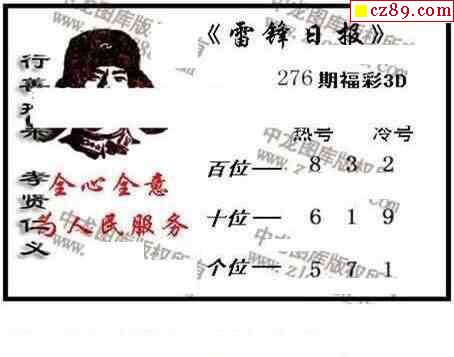 cz89.com
《雷锋日报》
276期福彩3D
热号 冷号
百位— 8 3 2
十位— 6 1 9
个位— 5 7 1
全心全意
为人民服务
孝贤仁义
行善
中龙图库版权所有